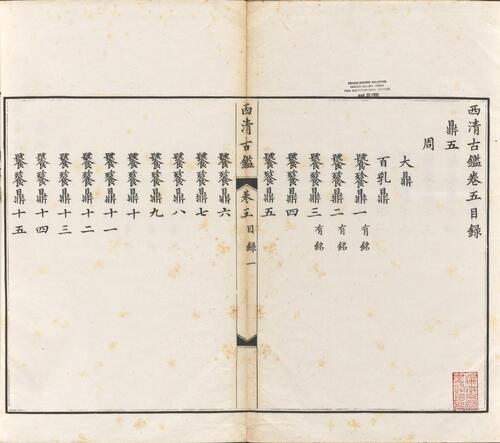 西清古鑑卷五目録
鼎五
周
大鼎
百乳鼎
饕餮鼎一 有銘
饕餮鼎二 有銘
饕餮鼎三 有銘
饕餮鼎四
饕餮鼎五
西清古鑑 卷五目録 一
饕餮鼎六
饕餮鼎七
饕餮鼎八
饕餮鼎九
饕餮鼎十
饕餮鼎十一
饕餮鼎十二
饕餮鼎十三
饕餮鼎十四
饕餮鼎十五